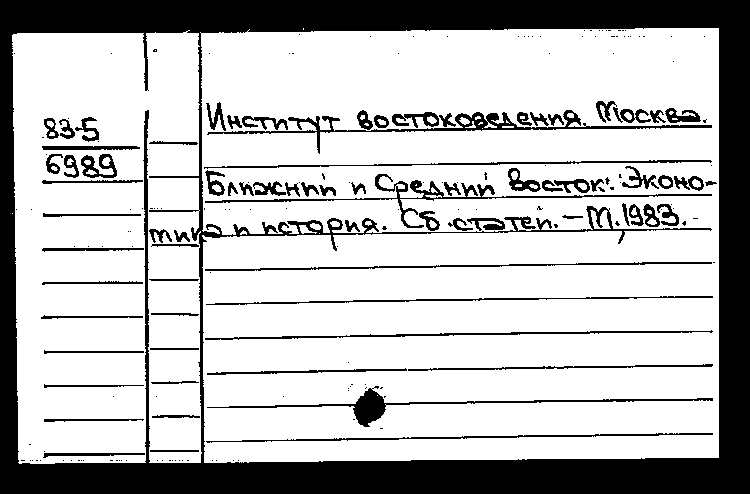 83-5
6989
Институт востоковедения. Москва.
Ближний и Средний Восток: Эконо-
мика и история. Сб. статей. – М., 1983.